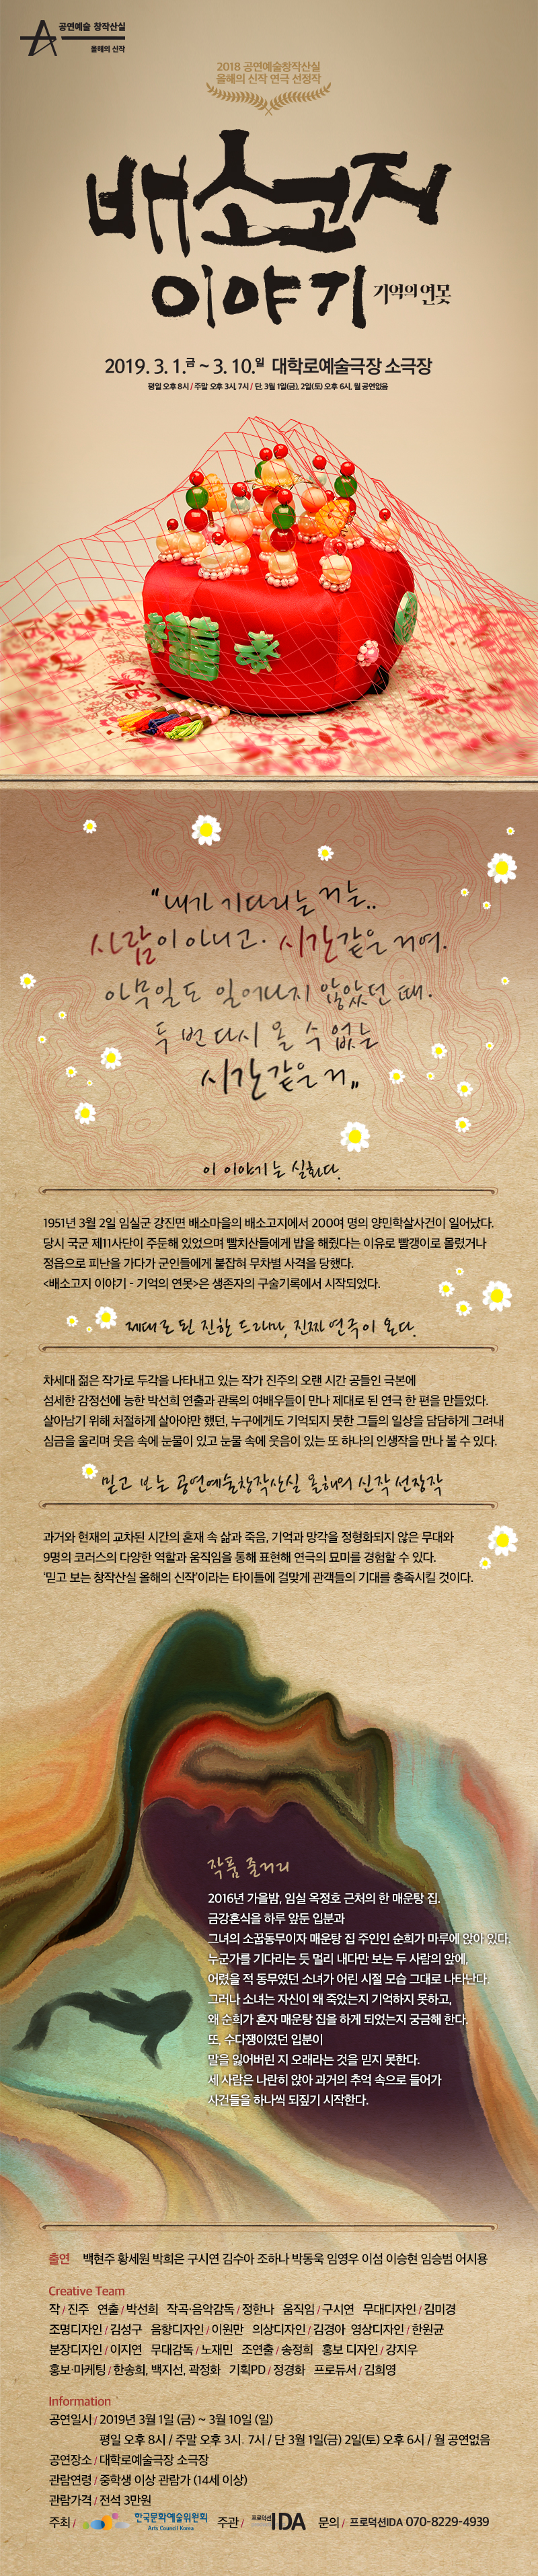 공연예술 창작산실
올해의 신작
2018 공연예술창작산실
올해의 신작 연극 선정작
배소고지
이야기 기억의 연못
2019. 3. 1.금 ~ 3. 10.일 대학로예술극장 소극장
평일 오후 8시 / 주말 오후 3시, 7시 / 단, 3월 1일(금), 2일(토) 오후 6시, 월 공연없음
"내가 기다리는 거는..
사람이 아니고. 시간같은 거여.
아무일도 일어나지 않았던 때.
두 번 다시 올 수 없는
시간같은 거"
이 이야기는 실화다.
1951년 3월 2일 임실군 강진면 배소마을의 배소고지에서 200여 명의 양민학살사건이 일어났다.
당시 국군 제11사단이 주둔해 있었으며 빨치산들에게 밥을 해줬다는 이유로 빨갱이로 몰렸거나
정읍으로 피난을 가다가 군인들에게 붙잡혀 무차별 사격을 당했다.
<배소고지 이야기 - 기억의 연못>은 생존자의 구술기록에서 시작되었다.
제대로 된 진한 드라마, 진짜 연극이 온다.
차세대 젊은 작가로 두각을 나타내고 있는 작가 진주의 오랜 시간 공들인 극본에
섬세한 감정선에 능한 박선희 연출과 관록의 여배우들이 만나 제대로 된 연극 한 편을 만들었다.
살아남기 위해 처절하게 살아야만 했던, 누구에게도 기억되지 못한 그들의 일상을 담담하게 그려내
심금을 울리며 웃음 속에 눈물이 있고 눈물 속에 웃음이 있는 또 하나의 인생작을 만나 볼 수 있다.
믿고 보는 공연예술창작산실 올해의 신작 선정작
과거와 현재의 교차된 시간의 혼재 속 삶과 죽음, 기억과 망각을 정형화되지 않은 무대와
9명의 코러스의 다양한 역할과 움직임을 통해 표현해 연극의 묘미를 경험할 수 있다.
'믿고 보는 창작산실 올해의 신작'이라는 타이틀에 걸맞게 관객들의 기대를 충족시킬 것이다.
작품 줄거리
2016년 가을밤, 임실 옥정호 근처의 한 매운탕 집.
금강혼식을 하루 앞둔 입분과
그녀의 소꿉동무이자 매운탕 집 주인인 순희가 마루에 앉아 있다.
누군가를 기다리는 듯 멀리 내다만 보는 두 사람의 앞에,
어렸을 적 동무였던 소녀가 어린 시절 모습 그대로 나타난다.
그러나 소녀는 자신이 왜 죽었는지 기억하지 못하고,
왜 순희가 혼자 매운탕 집을 하게 되었는지 궁금해 한다.
또, 수다쟁이였던 입분이
말을 잃어버린 지 오래라는 것을 믿지 못한다.
세 사람은 나란히 앉아 과거의 추억 속으로 들어가
사건들을 하나씩 되짚기 시작한다.
출연 백현주 황세원 박희은 구시연 김수아 조하나 박동욱 임영우 이섬 이승현 임승범 어시용
Creative Team
작 / 진주 연출 / 박선희 작곡·음악감독 / 정한나 움직임 / 구시연 무대디자인 / 김미경
조명디자인 / 김성구 음향디자인 / 이원만 의상디자인 / 김경아 영상디자인 / 한원균
분장디자인 / 이지연 무대감독 / 노재민 조연출 / 송정희 홍보 디자인 / 강지우
홍보·마케팅 / 한송희, 백지선, 곽정화 기획PD / 정경화 프로듀서 / 김희영
Information
공연일시 / 2019년 3월 1일 (금) ~ 3월 10일 (일)
평일 오후 8시 / 주말 오후 3시. 7시 / 단 3월 1일(금) 2일(토) 오후 6시 / 월 공연없음
공연장소 / 대학로예술극장 소극장
관람연령 / 중학생 이상 관람가 (14세 이상)
관람가격 / 전석 3만원
주최 / 한국문화예술위원회 Arts Council Korea 주관 / 프로덕션IDA 문의 / 프로덕션IDA 070-8229-4939